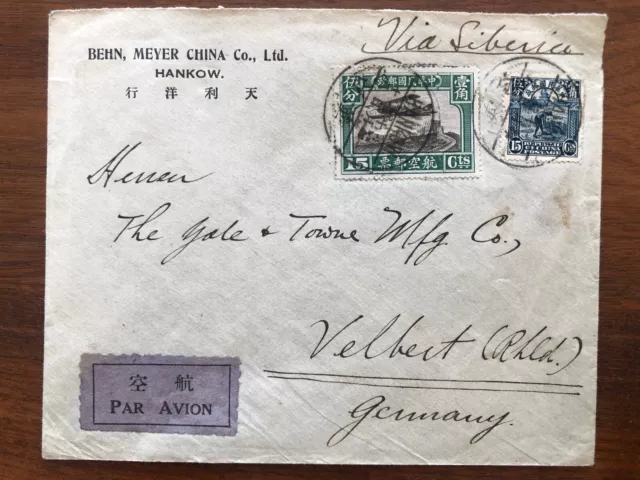 BEHN, MEYER CHINA Co., Ltd.
HANKOW.
行洋利天
Via Siberia
中華民國郵政
壹角
伍分
15 Cts
票郵空航
15 Cts
REPUBLIC
OF CHINA
POSTAGE
Herren
The Yale & Towne Mfg Co.,
Velbert (Rhld.)
Germany.
空航
PAR AVION